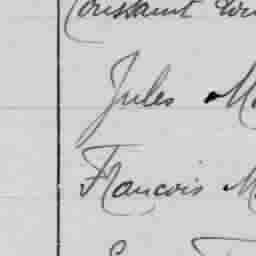 Toussaint
Jules M
Francois M